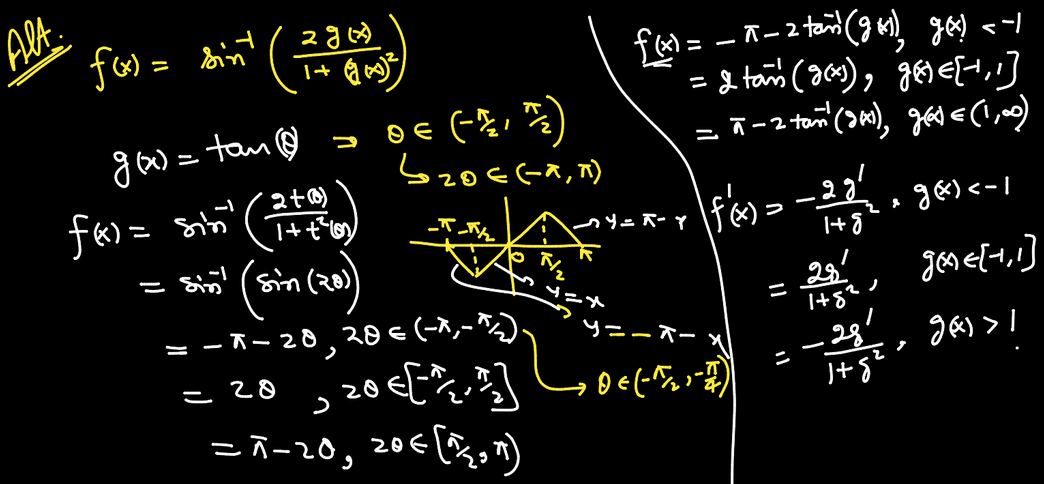 Alt.
f(x) = sin⁻¹ ( 2 g(x) / 1 + (g(x))² )
g(x) = tan θ ⇒ θ ∈ (-π/2, π/2)
↳ 2θ ∈ (-π, π)
f(x) = sin⁻¹ ( 2t(θ) / 1 + t²(θ) )
= sin⁻¹ ( sin (2θ) )
= -π - 2θ, 2θ ∈ (-π, -π/2)
→ θ ∈ (-π/2, -π/4)
= 2θ , 2θ ∈ [-π/2, π/2]
= π - 2θ, 2θ ∈ [π/2, π)
-π -π/2 0 π/2 π
→ y = π - x
y = x
y = - π - x
f(x) = - π - 2 tan⁻¹ (g(x)), g(x) < -1
= 2 tan⁻¹ (g(x)), g(x) ∈ [-1, 1]
= π - 2 tan⁻¹ (g(x)), g(x) ∈ (1, ∞)
f'(x) = - 2g' / 1 + g² , g(x) < -1
= 2g' / 1 + g² , g(x) ∈ [-1, 1]
= - 2g' / 1 + g² , g(x) > 1.